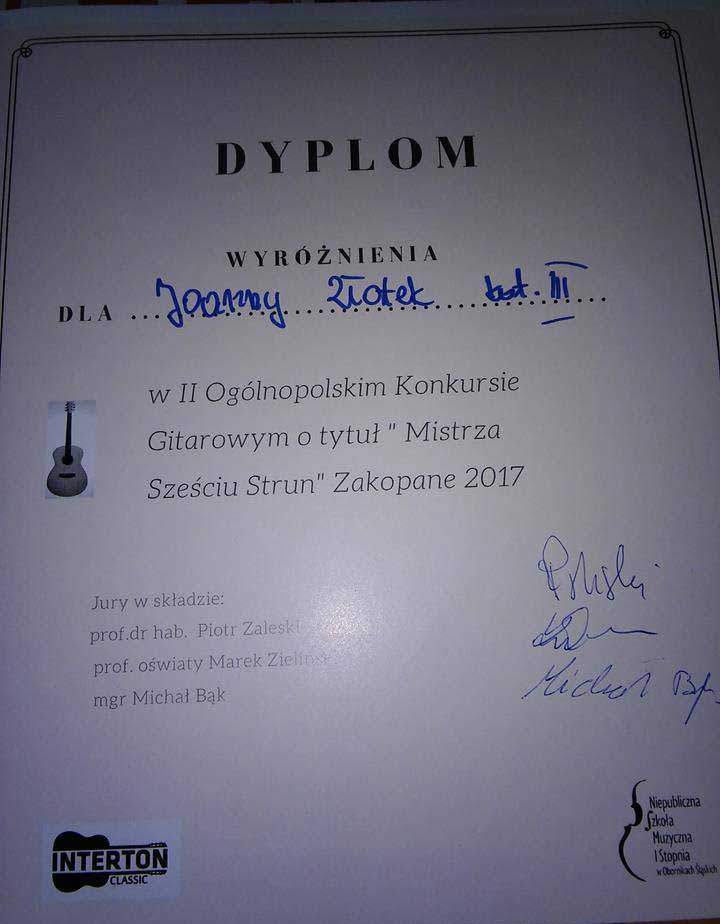 DYPLOM
WYRÓŻNIENIA
DLA ... Joanny Złotek kat. III ...
w II Ogólnopolskim Konkursie
Gitarowym o tytuł " Mistrza
Sześciu Strun" Zakopane 2017
Jury w składzie:
prof.dr hab. Piotr Zaleski
prof. oświaty Marek Zieliński
mgr Michał Bąk
Michał Bąk
INTERTON
CLASSIC
Niepubliczna
Szkoła
Muzyczna
I Stopnia
w Obornikach Śląskich